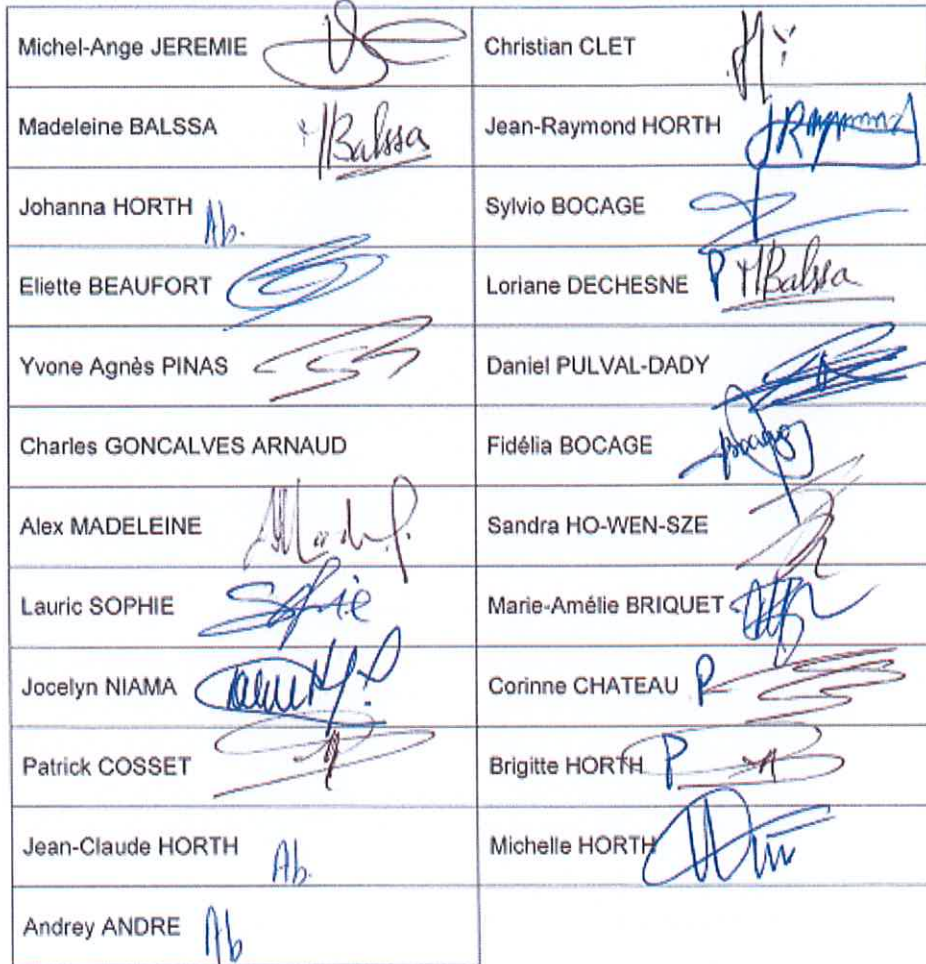 Michel-Ange JEREMIE
Christian CLET
Madeleine BALSSA MBalssa
Jean-Raymond HORTH JRaymond
Johanna HORTH Ab.
Sylvio BOCAGE
Eliette BEAUFORT
Loriane DECHESNE P MBalssa
Yvone Agnès PINAS
Daniel PULVAL-DADY
Charles GONCALVES ARNAUD
Fidélia BOCAGE Bocage
Alex MADELEINE
Sandra HO-WEN-SZE
Lauric SOPHIE Sophie
Marie-Amélie BRIQUET
Jocelyn NIAMA
Corinne CHATEAU P
Patrick COSSET
Brigitte HORTH P
Jean-Claude HORTH Ab.
Michelle HORTH
Andrey ANDRE Ab